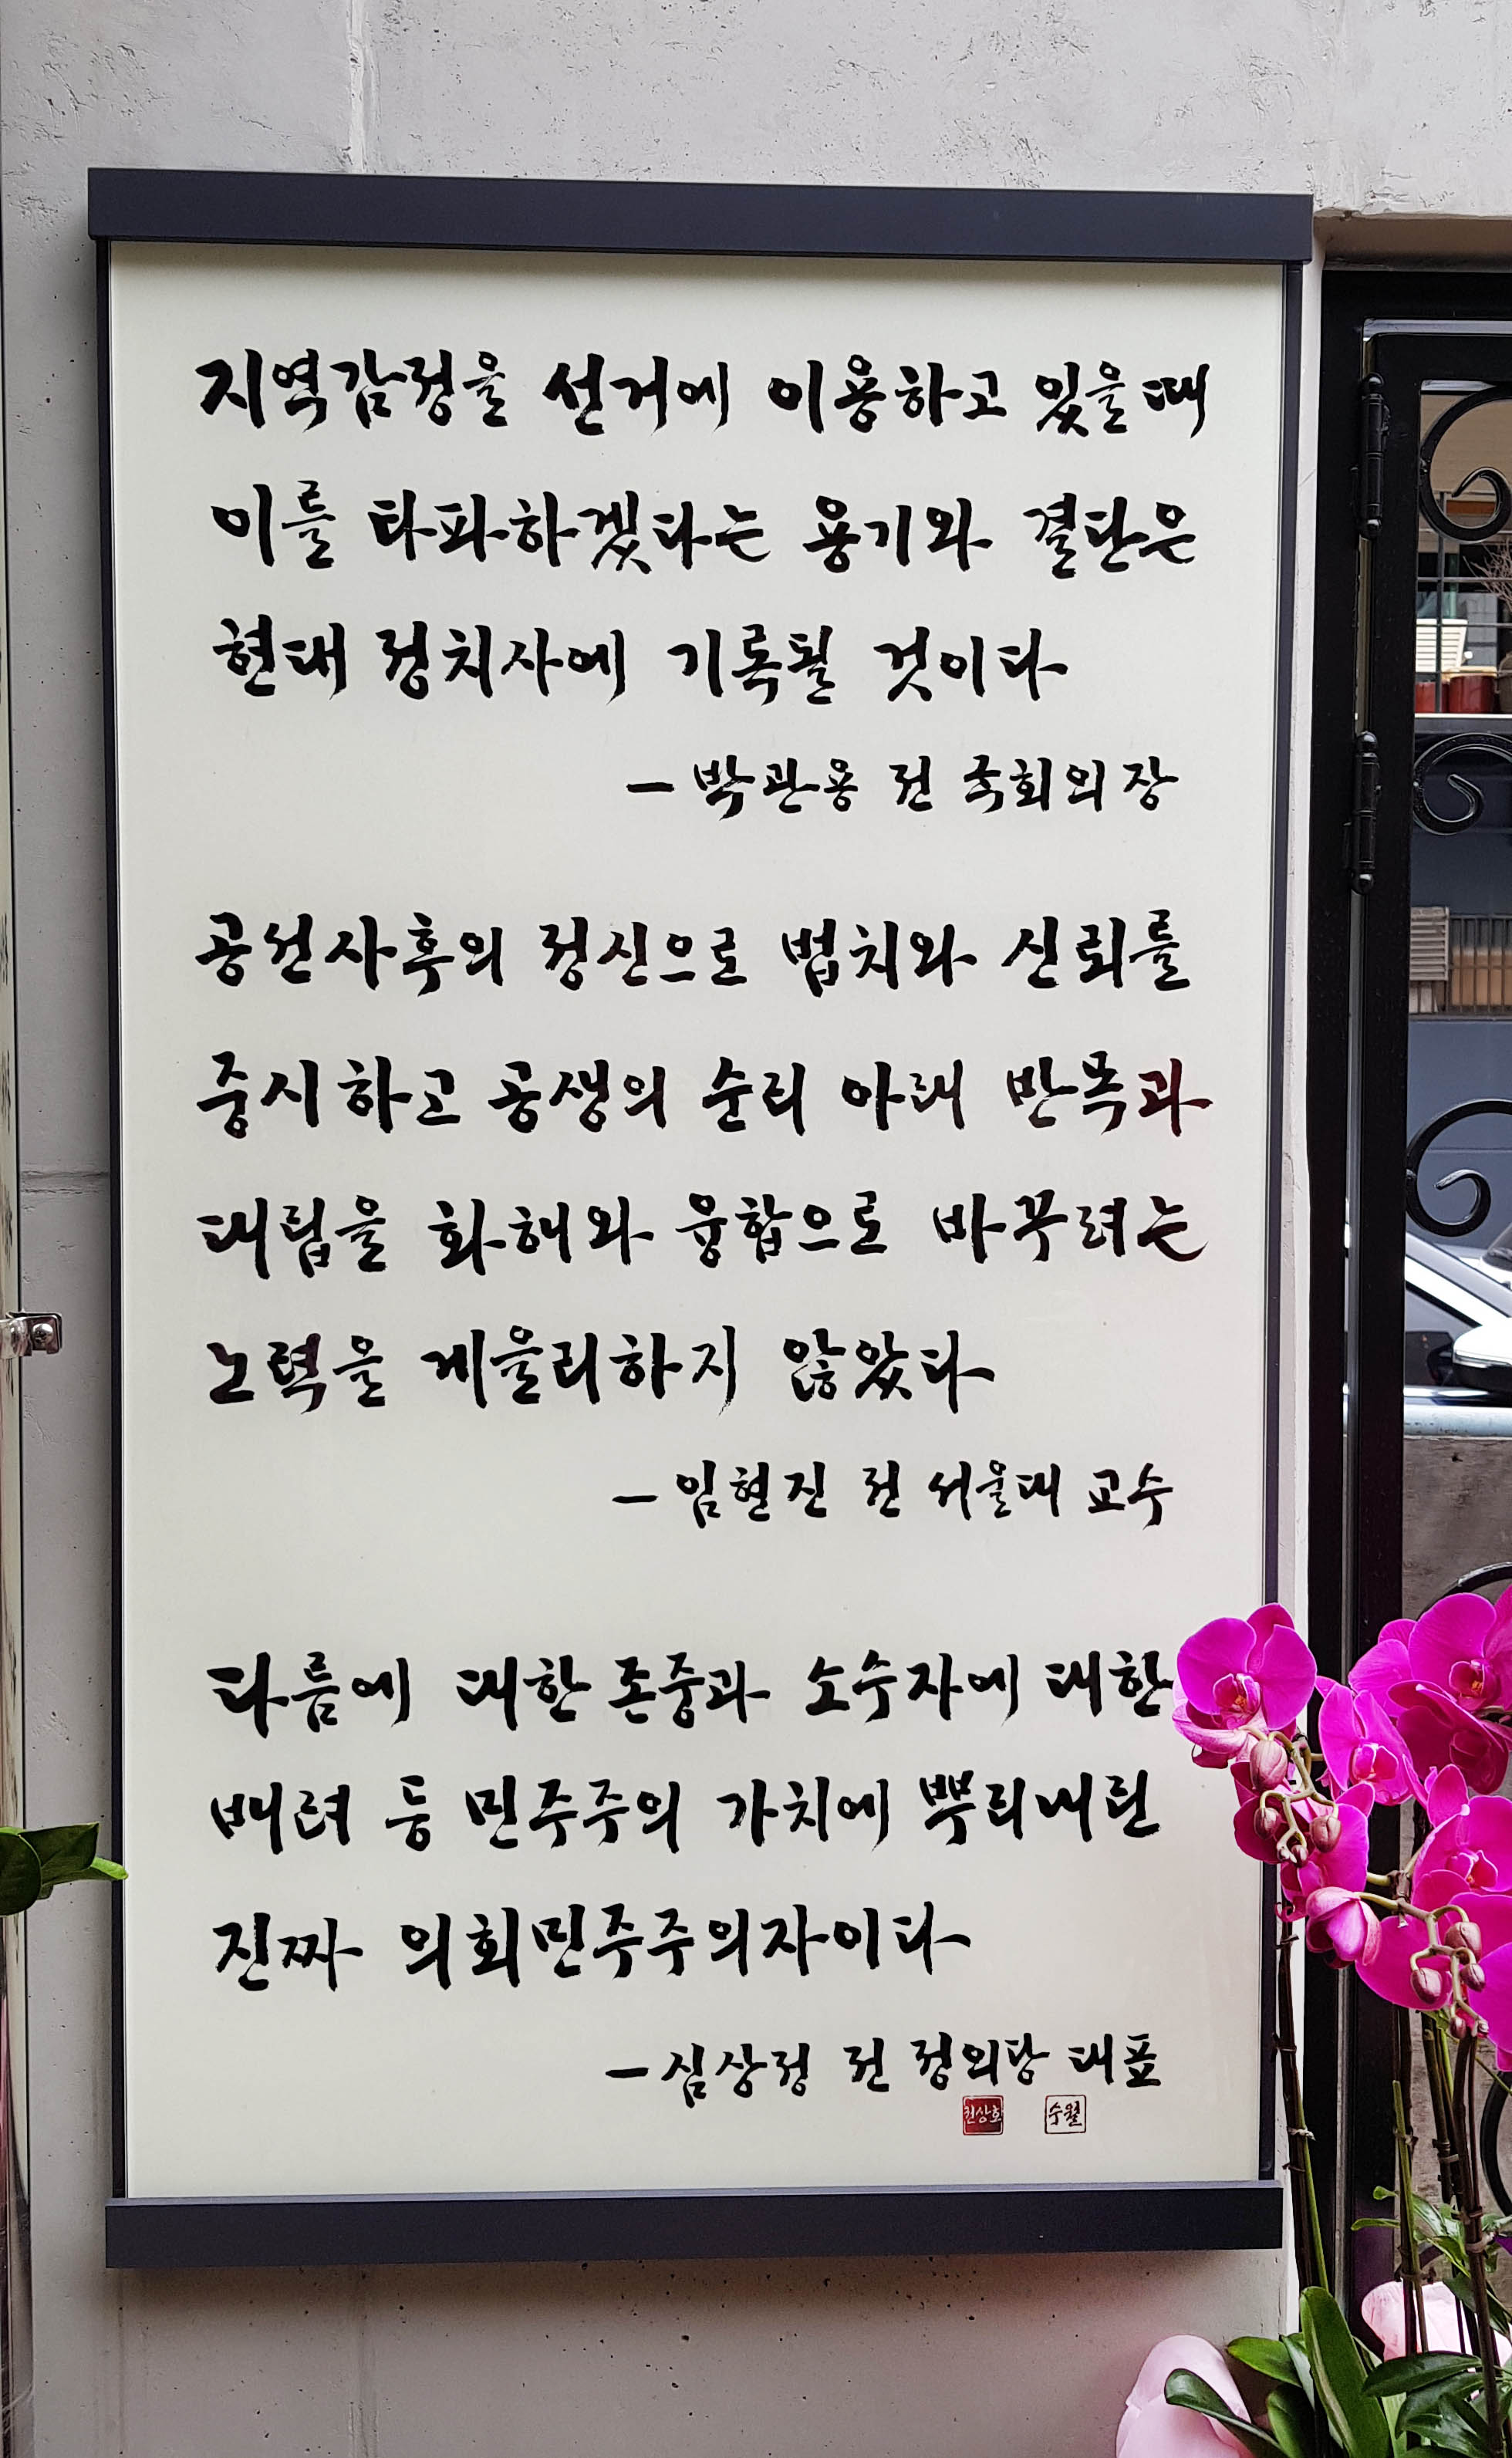 지역감정을 선거에 이용하고 있을때
이를 타파하겠다는 용기와 결단은
현대 정치사에 기록될 것이다
- 박관용 전 국회의장
공선사후의 정신으로 법치와 신뢰를
중시하고 공생의 순리 아래 반목과
대립을 화해와 융합으로 바꾸려는
노력을 게을리하지 않았다
- 임현진 전 서울대 교수
다름에 대한 존중과 소수자에 대한
배려 등 민주주의 가치에 뿌리내린
진짜 의회민주주의자이다
- 심상정 전 정의당 대표
수월